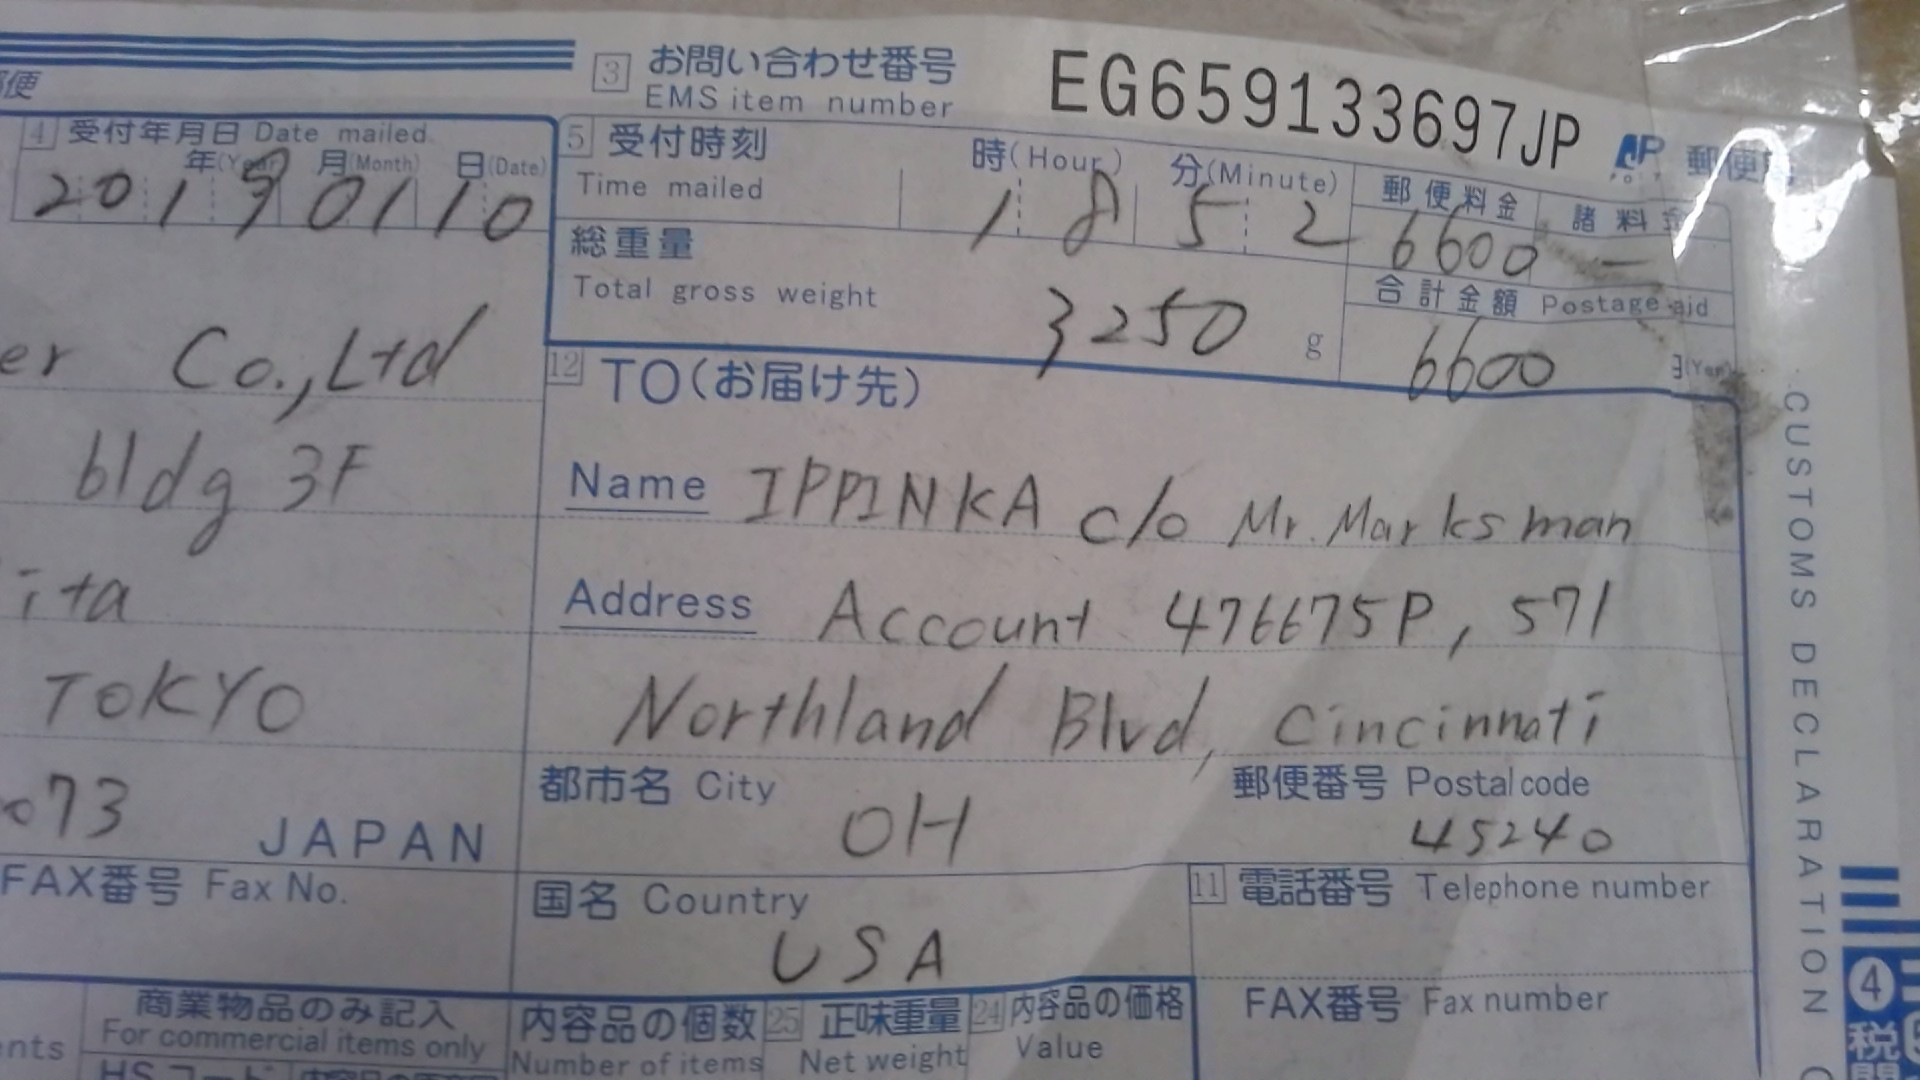 郵便
3 お問い合わせ番号 EG659133697JP
EMS item number
JP 郵便
4 受付年月日 Date mailed
年(Year) 月(Month) 日(Date)
2019 01 10
5 受付時刻 時(Hour) 分(Minute)
Time mailed 18 52
郵便料金 諸料金
6600 —
総重量
Total gross weight 3250 g
合計金額 Postage
6600 (Yen)
er Co.,Ltd
bldg 3F
ita
TOKYO
073 JAPAN
FAX番号 Fax No.
12 TO(お届け先)
Name IPPINKA c/o Mr. Marksman
Address Account 476675P, 571
Northland Blvd, Cincinnati
都市名 City OH
郵便番号 Postal code
45240
国名 Country
USA
11 電話番号 Telephone number
FAX番号 Fax number
商業物品のみ記入
For commercial items only
HSコード
nts
内容品の個数
Number of items
25 正味重量
Net weight
24 内容品の価格
Value
CUSTOMS DECLARATION
4 税